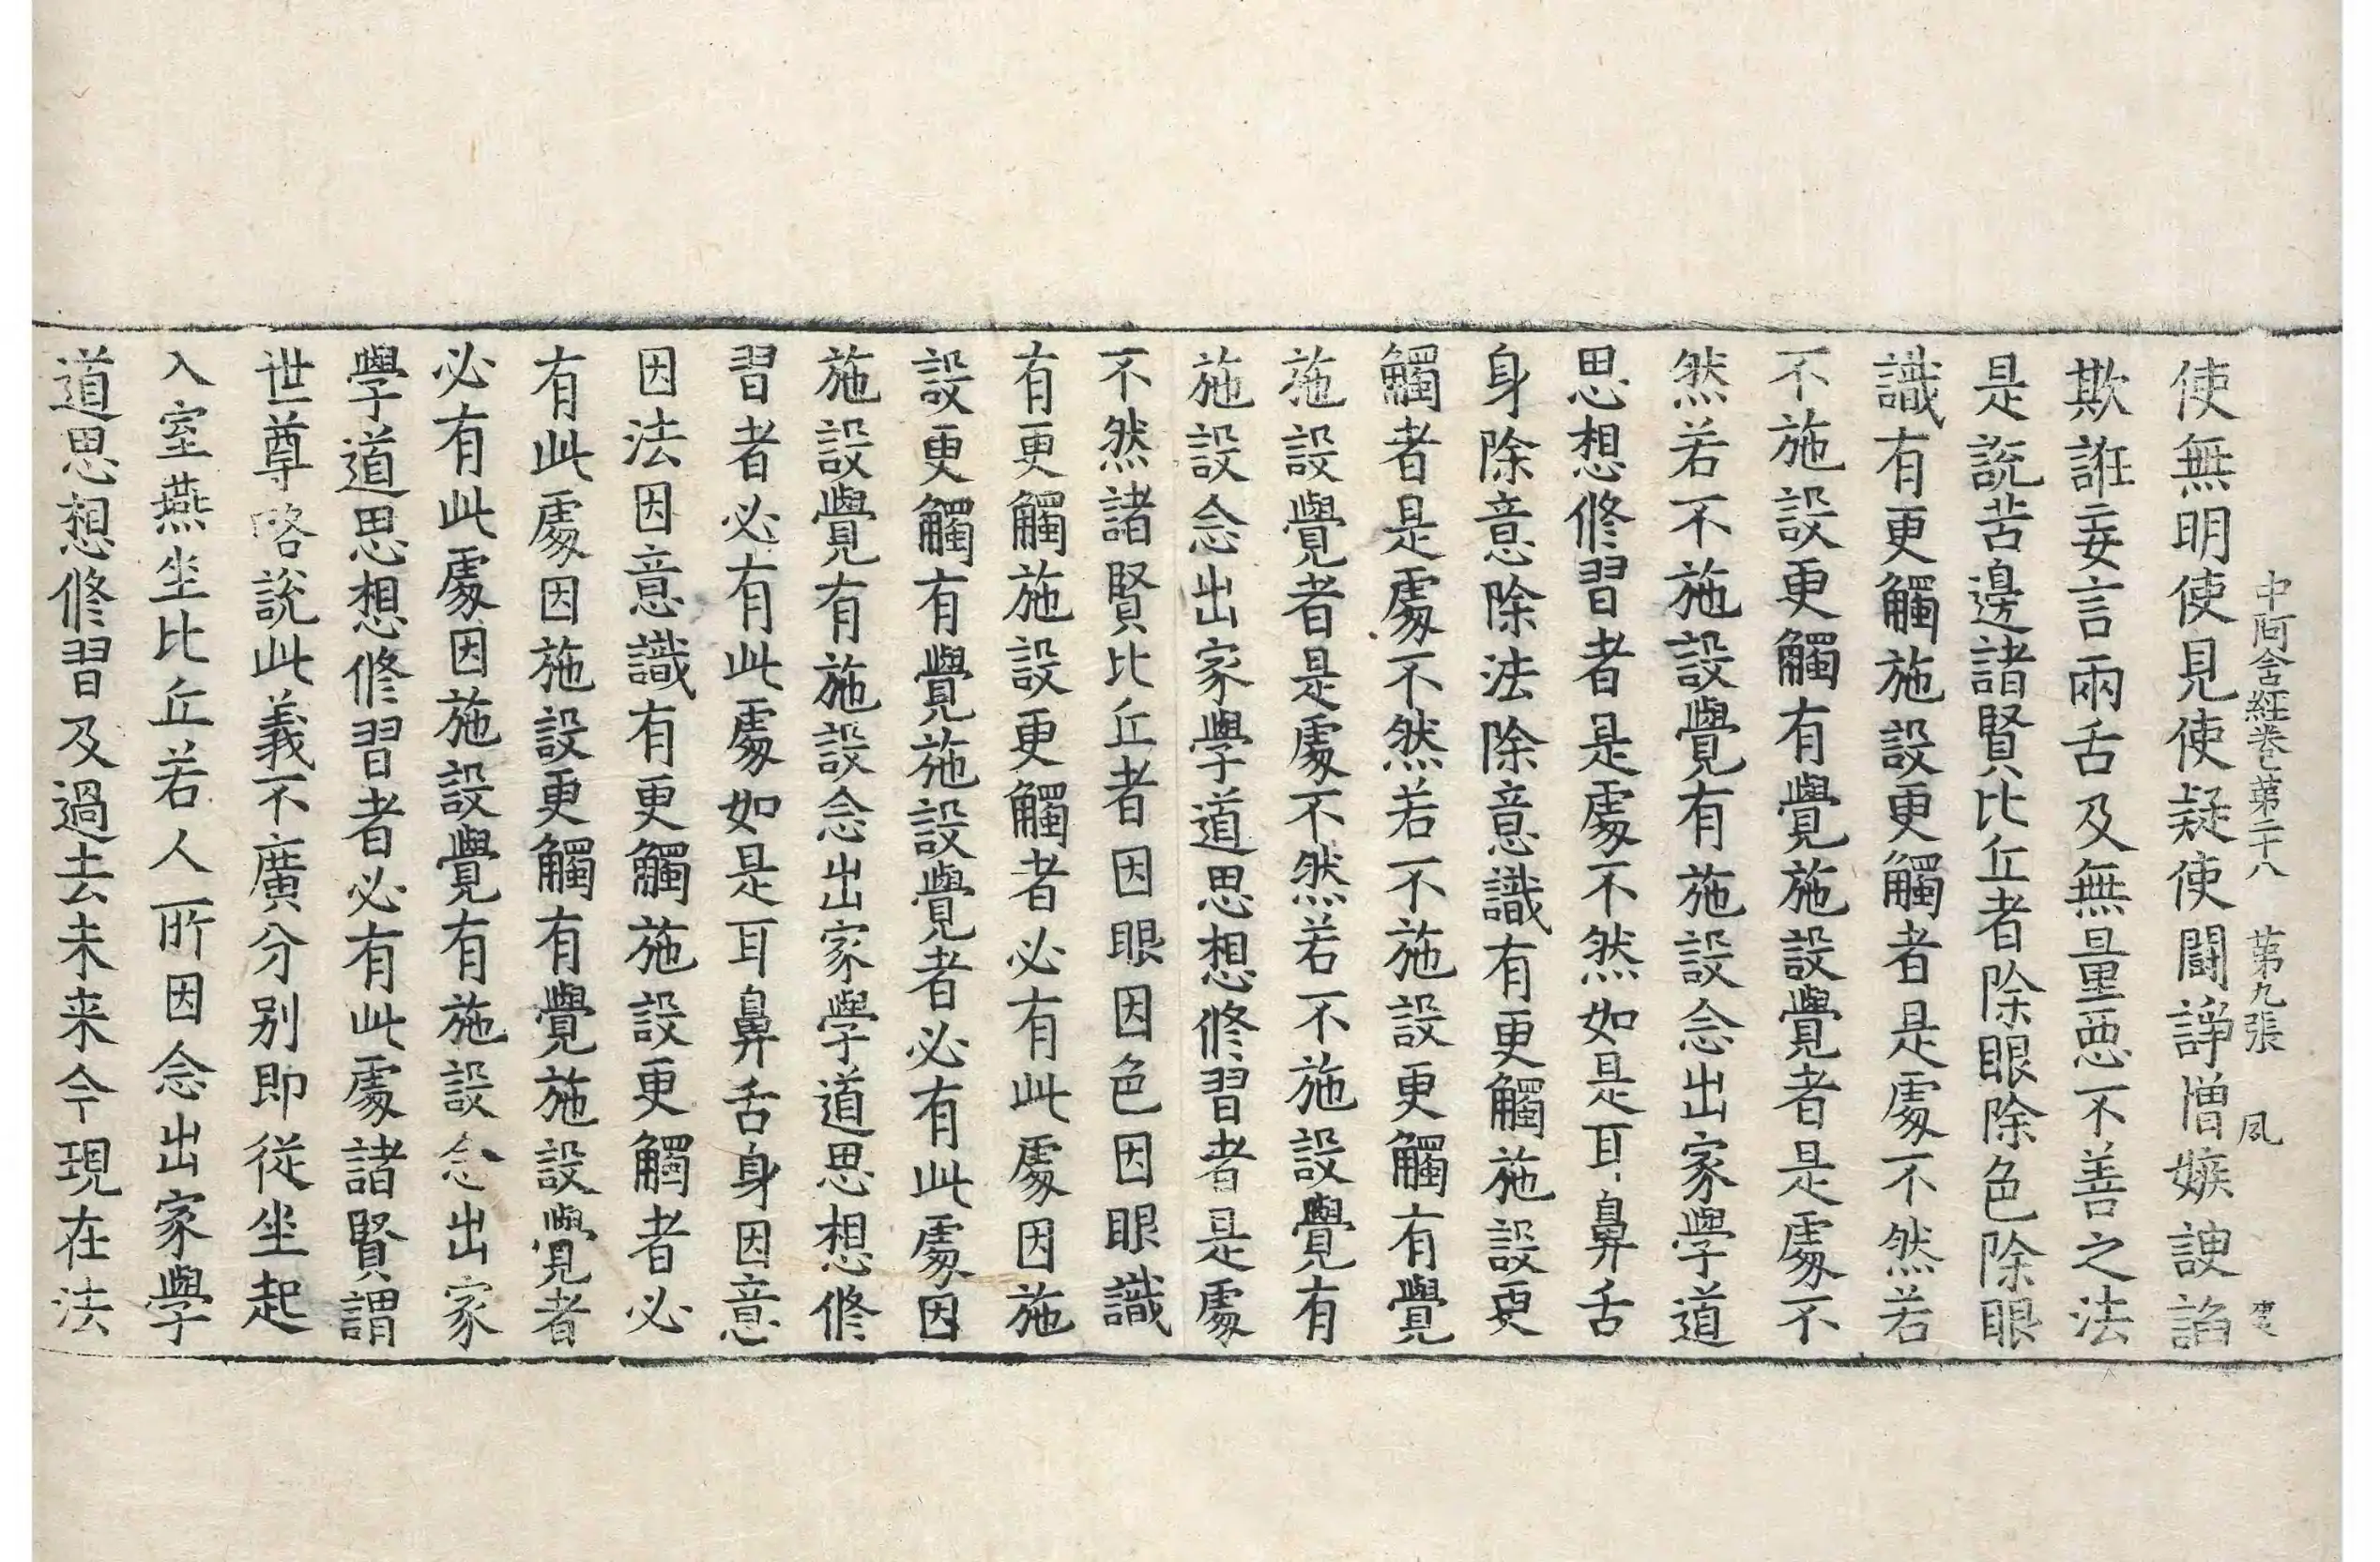 中阿含経卷第二十八 第九張 夙
使無明使見使疑使鬪諍憎嫉諛諂
欺誑妄言兩舌及無量惡不善之法
是說苦邊諸賢比丘者除眼除色除眼
識有更觸施設更觸者是處不然若
不施設更觸有覺施設覺者是處不
然若不施設覺有施設念出家學道
思想修習者是處不然如是耳鼻舌
身除意除法除意識有更觸施設更
觸者是處不然若不施設更觸有覺
施設覺者是處不然若不施設覺有
施設念出家學道思想修習者是處
不然諸賢比丘者因眼因色因眼識
有更觸施設更觸者必有此處因施
設更觸有覺施設覺者必有此處因
施設覺有施設念出家學道思想修
習者必有此處如是耳鼻舌身因意
因法因意識有更觸施設更觸者必
有此處因施設更觸有覺施設覺者
必有此處因施設覺有施設念出家
學道思想修習者必有此處諸賢謂
世尊略說此義不廣分別即從坐起
入室燕坐比丘若人所因念出家學
道思想修習及過去未来今現在法